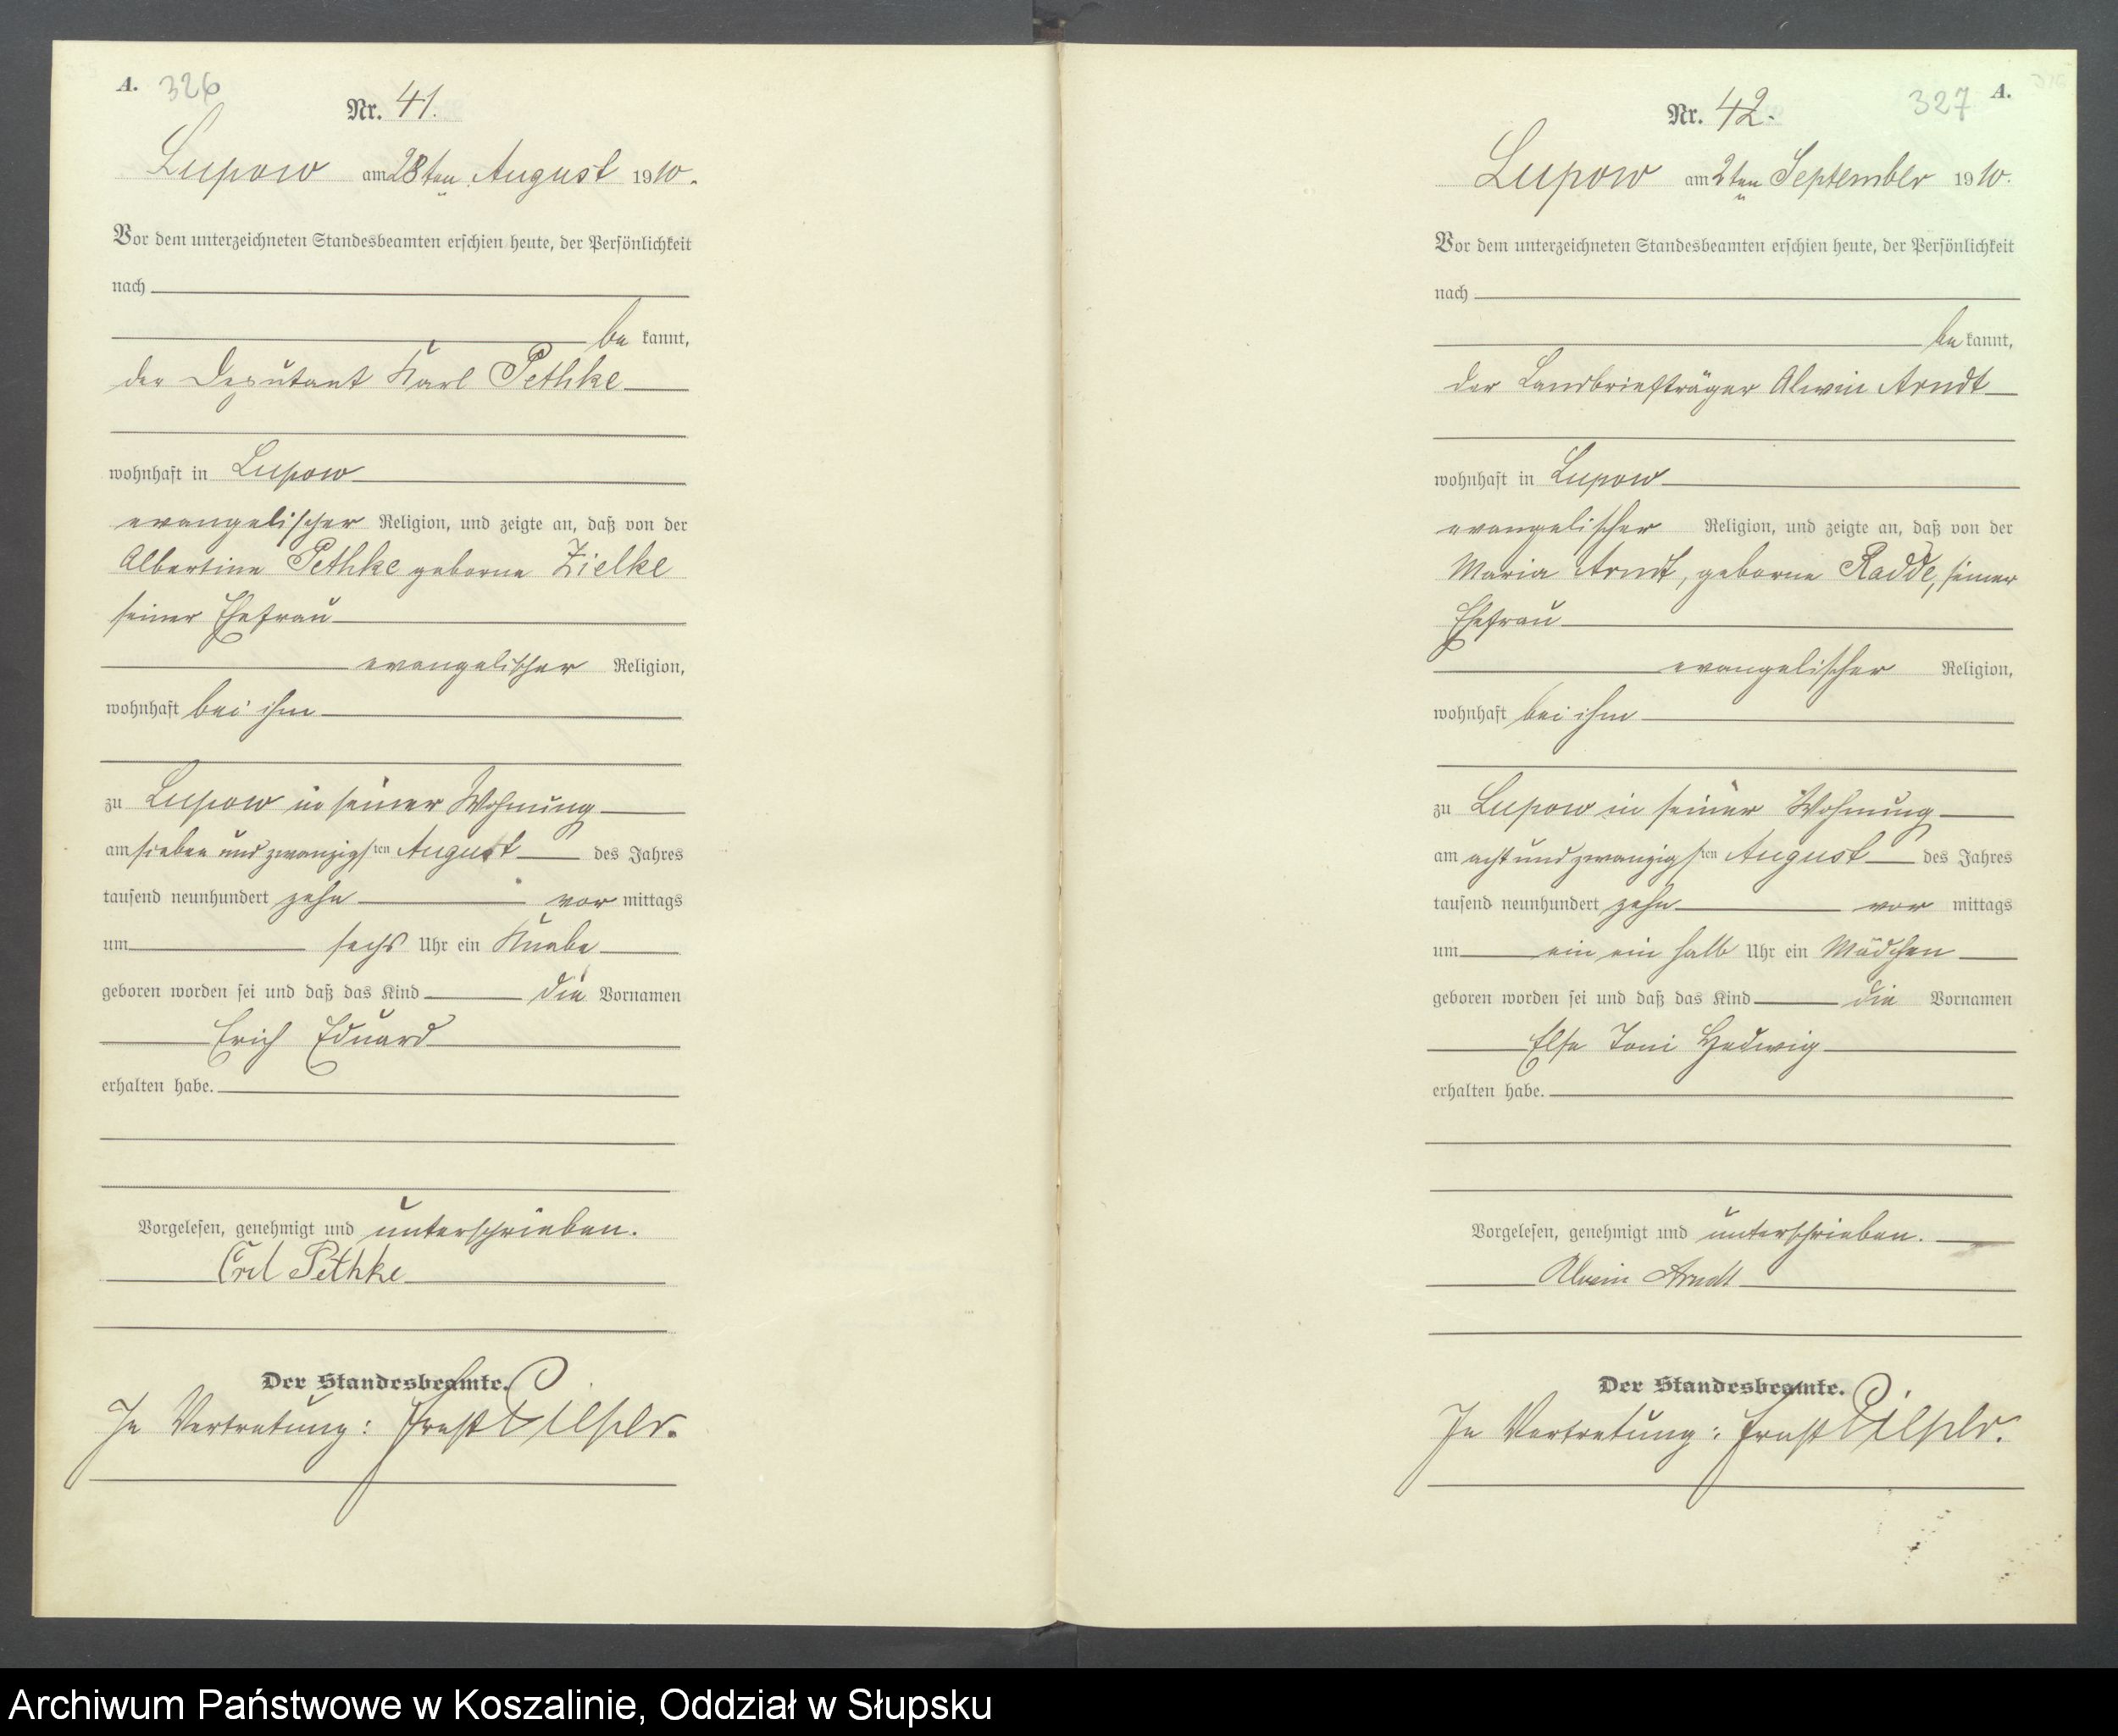 A. 326
Nr. 41.
Lupow am 28ten August 1910.
Vor dem unterzeichneten Standesbeamten erschien heute, der Persönlichkeit
nach
be kannt,
der Deputant Karl Pethke
wohnhaft in Lupow
evangelischer Religion, und zeigte an, daß von der
Albertine Pethke geborne Zielke
seiner Ehefrau
evangelischer Religion,
wohnhaft bei ihm
zu Lupow in seiner Wohnung
am sieben und zwanzigsten August des Jahres
tausend neunhundert zehn vor mittags
um sechs Uhr ein Knabe
geboren worden sei und daß das Kind die Vornamen
Erich Eduard
erhalten habe.
Vorgelesen, genehmigt und unterschrieben.
Carl Pethke
Der Standesbeamte.
In Vertretung: Ernst
327 A.
Nr. 42.
Lupow am 2ten September 1910.
Vor dem unterzeichneten Standesbeamten erschien heute, der Persönlichkeit
nach
be kannt,
der Landbriefträger Alwin Arndt
wohnhaft in Lupow
evangelischer Religion, und zeigte an, daß von der
Maria Arndt, geborne Radde, seiner
Ehefrau
evangelischer Religion,
wohnhaft bei ihm
zu Lupow in seiner Wohnung
am acht und zwanzigsten August des Jahres
tausend neunhundert zehn vor mittags
um ein ein halb Uhr ein Mädchen
geboren worden sei und daß das Kind die Vornamen
Else Toni Hedwig
erhalten habe.
Vorgelesen, genehmigt und unterschrieben.
Alwin Arndt
Der Standesbeamte.
In Vertretung: Ernst
Archiwum Państwowe w Koszalinie, Oddział w Słupsku